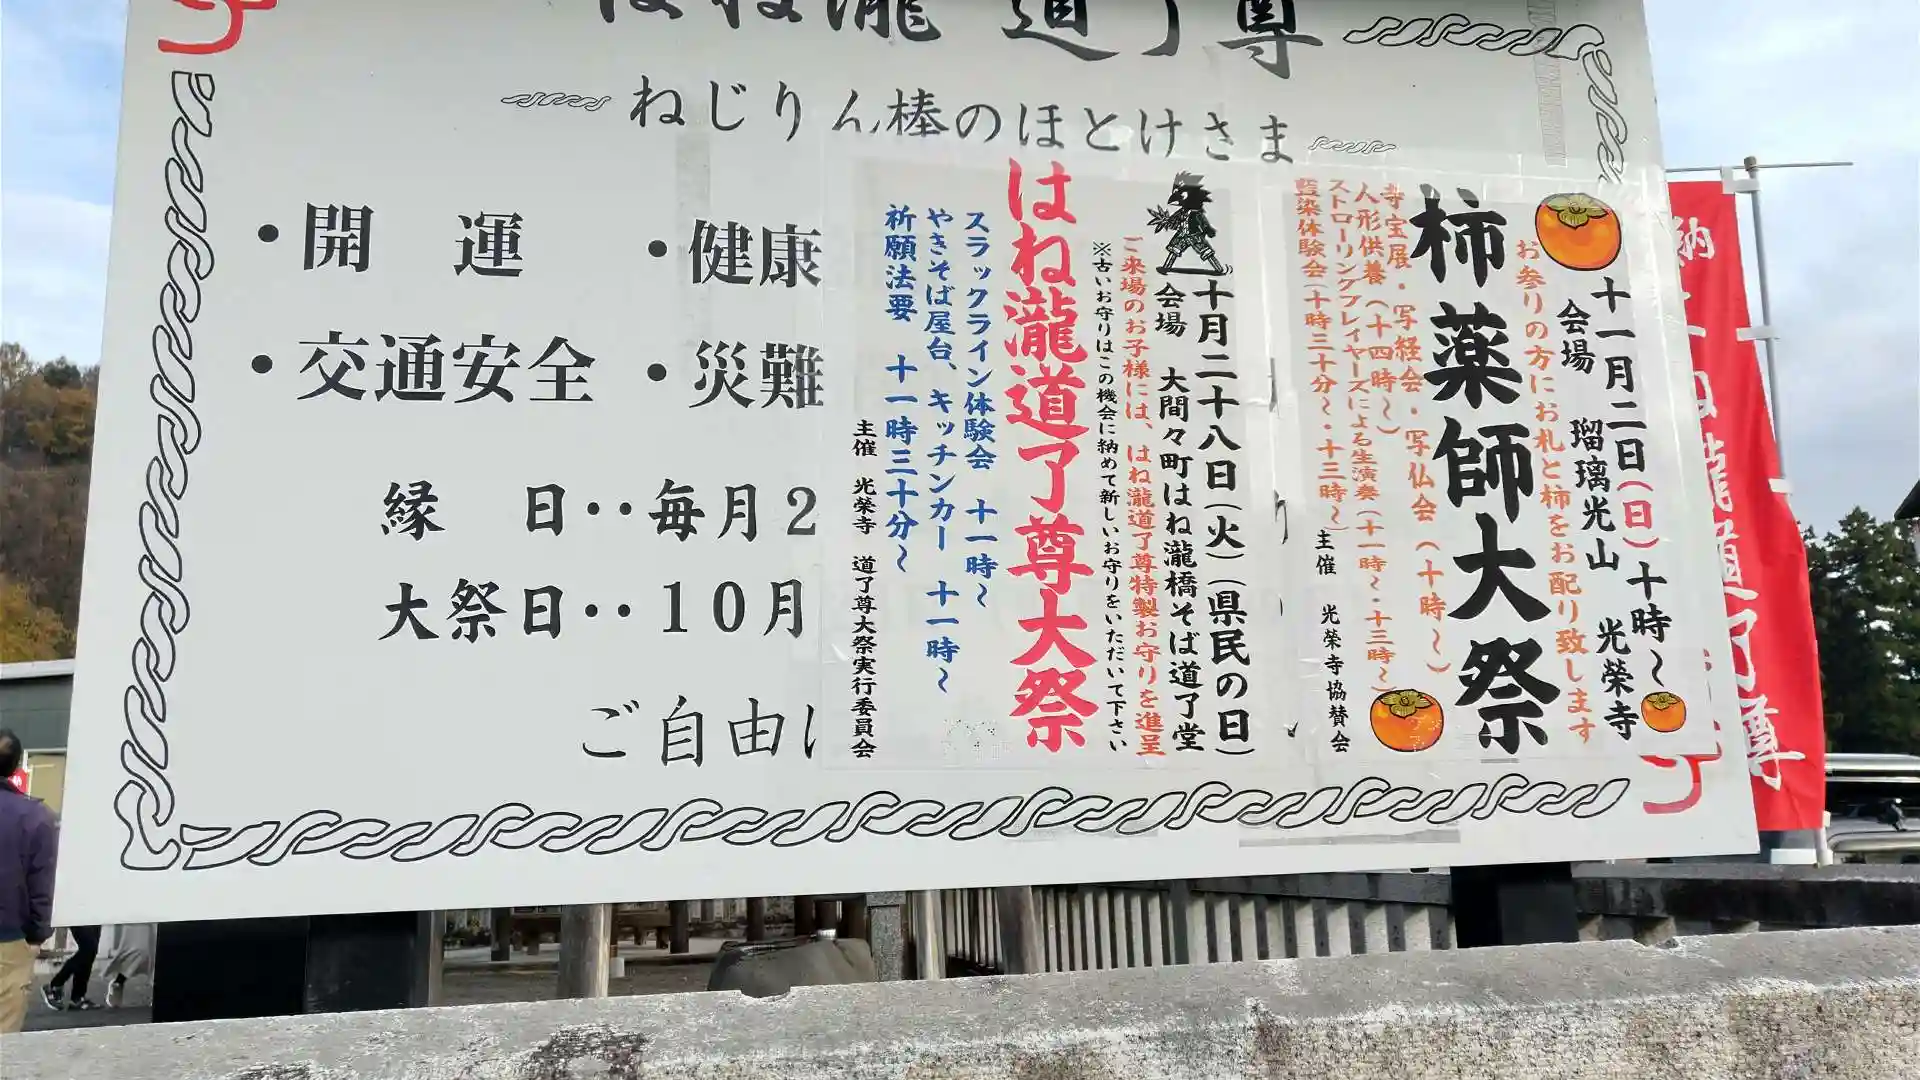 はね瀧 道了尊
ねじりん棒のほとけさま
・開 運
・健康
・交通安全
・災難
縁 日‥毎月2
大祭日‥10月
ご自由に
十一月二日(日)十時~
会場 瑠璃光山 光榮寺
お参りの方にお札と柿をお配り致します
柿薬師大祭
寺宝展・写経会・写仏会(十時~)
人形供養(十四時~)
ストローリングプレイヤーズによる生演奏(十一時~・十三時~)
藍染体験会(十時三十分~・十三時~)
主催 光榮寺協賛会
十月二十八日(火)(県民の日)
会場 大間々町はね瀧橋そば道了堂
ご来場のお子様には、はね瀧道了尊特製お守りを進呈
※古いお守りはこの機会に納めて新しいお守りをいただいて下さい
はね瀧道了尊大祭
スラックライン体験会 十一時~
やきそば屋台、キッチンカー 十一時~
祈願法要 十一時三十分~
主催 光榮寺 道了尊大祭実行委員会
納
瀧道了尊